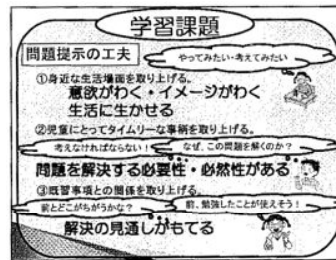 学習課題
問題提示の工夫
やってみたい・考えてみたい
①身近な生活場面を取り上げる。
意欲がわく・イメージがわく
生活に生かせる
②児童にとってタイムリーな事柄を取り上げる。
考えなければならない!
なぜ、この問題を解くのか?
問題を解決する必要性・必然性がある
③既習事項との関係を取り上げる。
前とどこがちがうかな?
前、勉強したことが使えそう!
解決の見通しがもてる